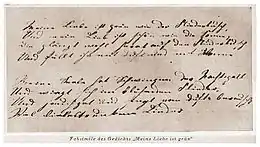 Meine Liebe ist grün wie der Fliederbusch,
Und mein Lieb ist schön wie die Sonne,
Die glänzt wohl herab auf den Fliederbusch
Und füllt ihn mit Duft und mit Wonne
Meine Seele hat Schwingen der Nachtigall
Und wiegt sich in blühendem Flieder,
Und jauchzet und singt vom Duft berauscht
Viel liebestrunkene Lieder
Faksimile des Gedichts „Meine Liebe ist grün“